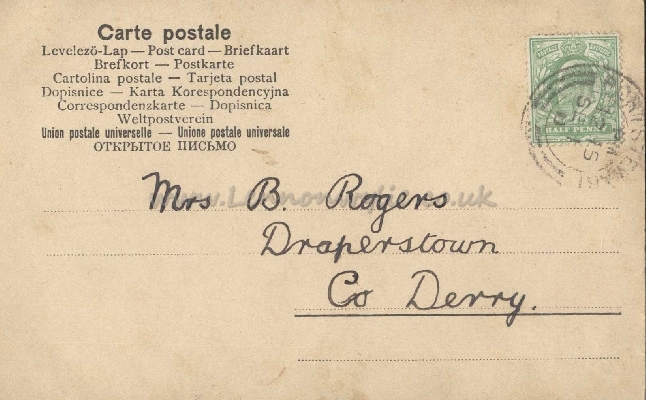 Carte postale
Levelező-Lap — Post card — Briefkaart
Brefkort — Postkarte
Cartolina postale — Tarjeta postal
Dopisnice — Karta Korespondencyjna
Correspondenzkarte — Dopisnica
Weltpostverein
Union postale universelle — Unione postale universale
ОТКРЫТОЕ ПИСЬМО
HALF PENNY
Mrs B. Rogers
Draperstown
Co Derry.